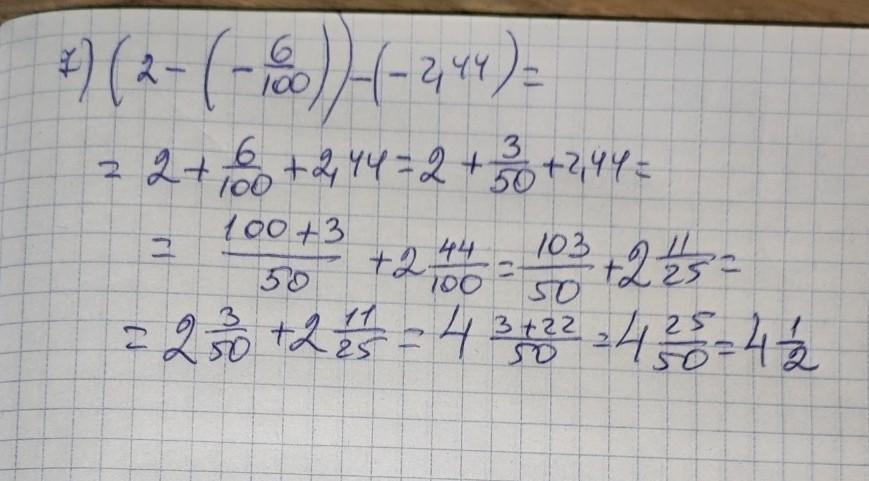 7) (2 - (- 6/100)) - (- 2,44) =
= 2 + 6/100 + 2,44 = 2 + 3/50 + 2,44 =
= (100 + 3)/50 + 2 44/100 = 103/50 + 2 11/25 =
= 2 3/50 + 2 11/25 = 4 (3 + 22)/50 = 4 25/50 = 4 1/2